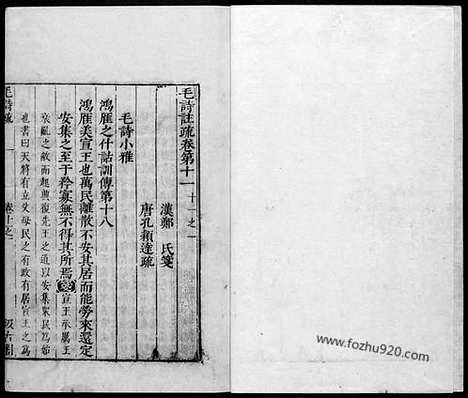 毛詩註疏卷第十一 十一之一
漢鄭 氏箋
唐孔穎達疏
毛詩小雅
鴻雁之什詁訓傳第十八
鴻雁美宣王也萬民離散不安其居而能勞來還定
安集之至于矜寡無不得其所焉 宣王承厲王
衰亂之敝而起興復先王之道以安集衆民為始
也書曰天將有立父母民之有政有居宣王之為
毛詩疏
www.fozhu920.com